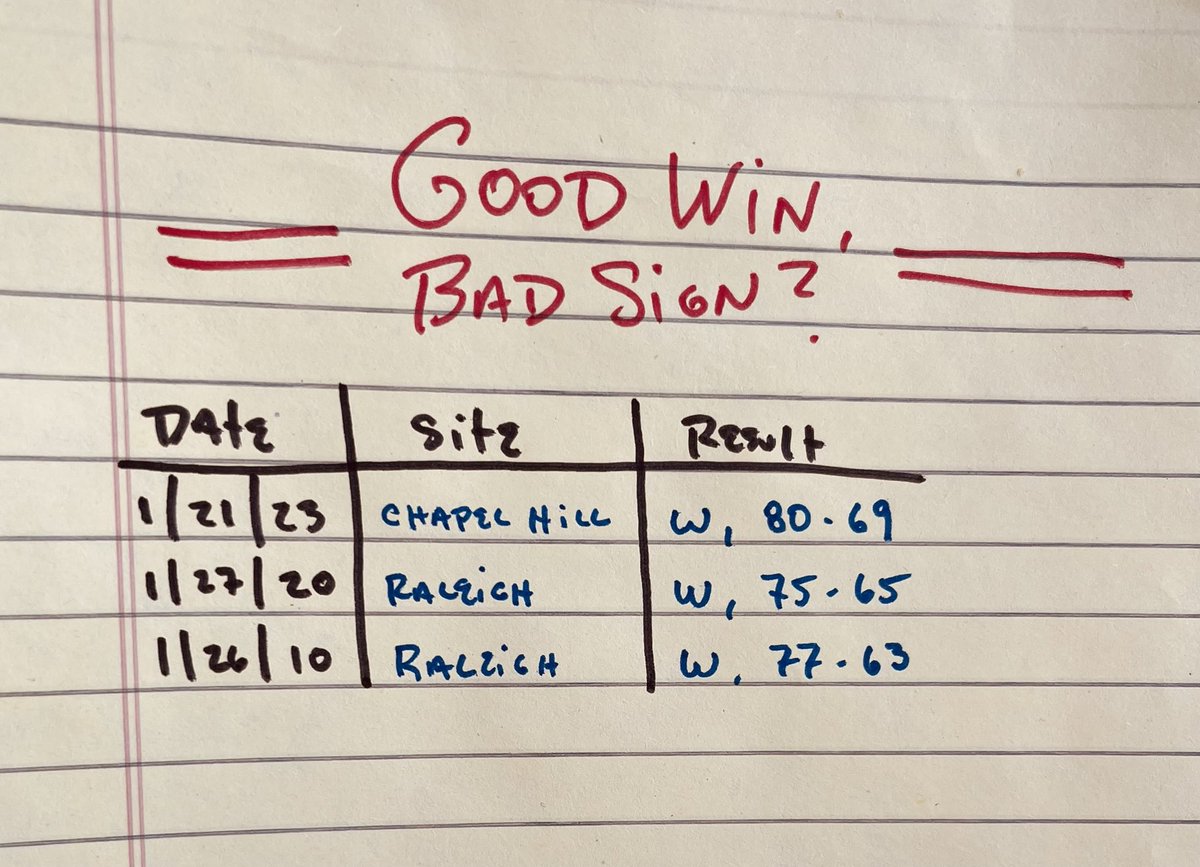 GOOD WIN,
BAD SIGN?
DATE SITE RESULT
1/21/23 CHAPEL HILL W, 80-69
1/27/20 RALEIGH W, 75-65
1/26/10 RALEIGH W, 77-63